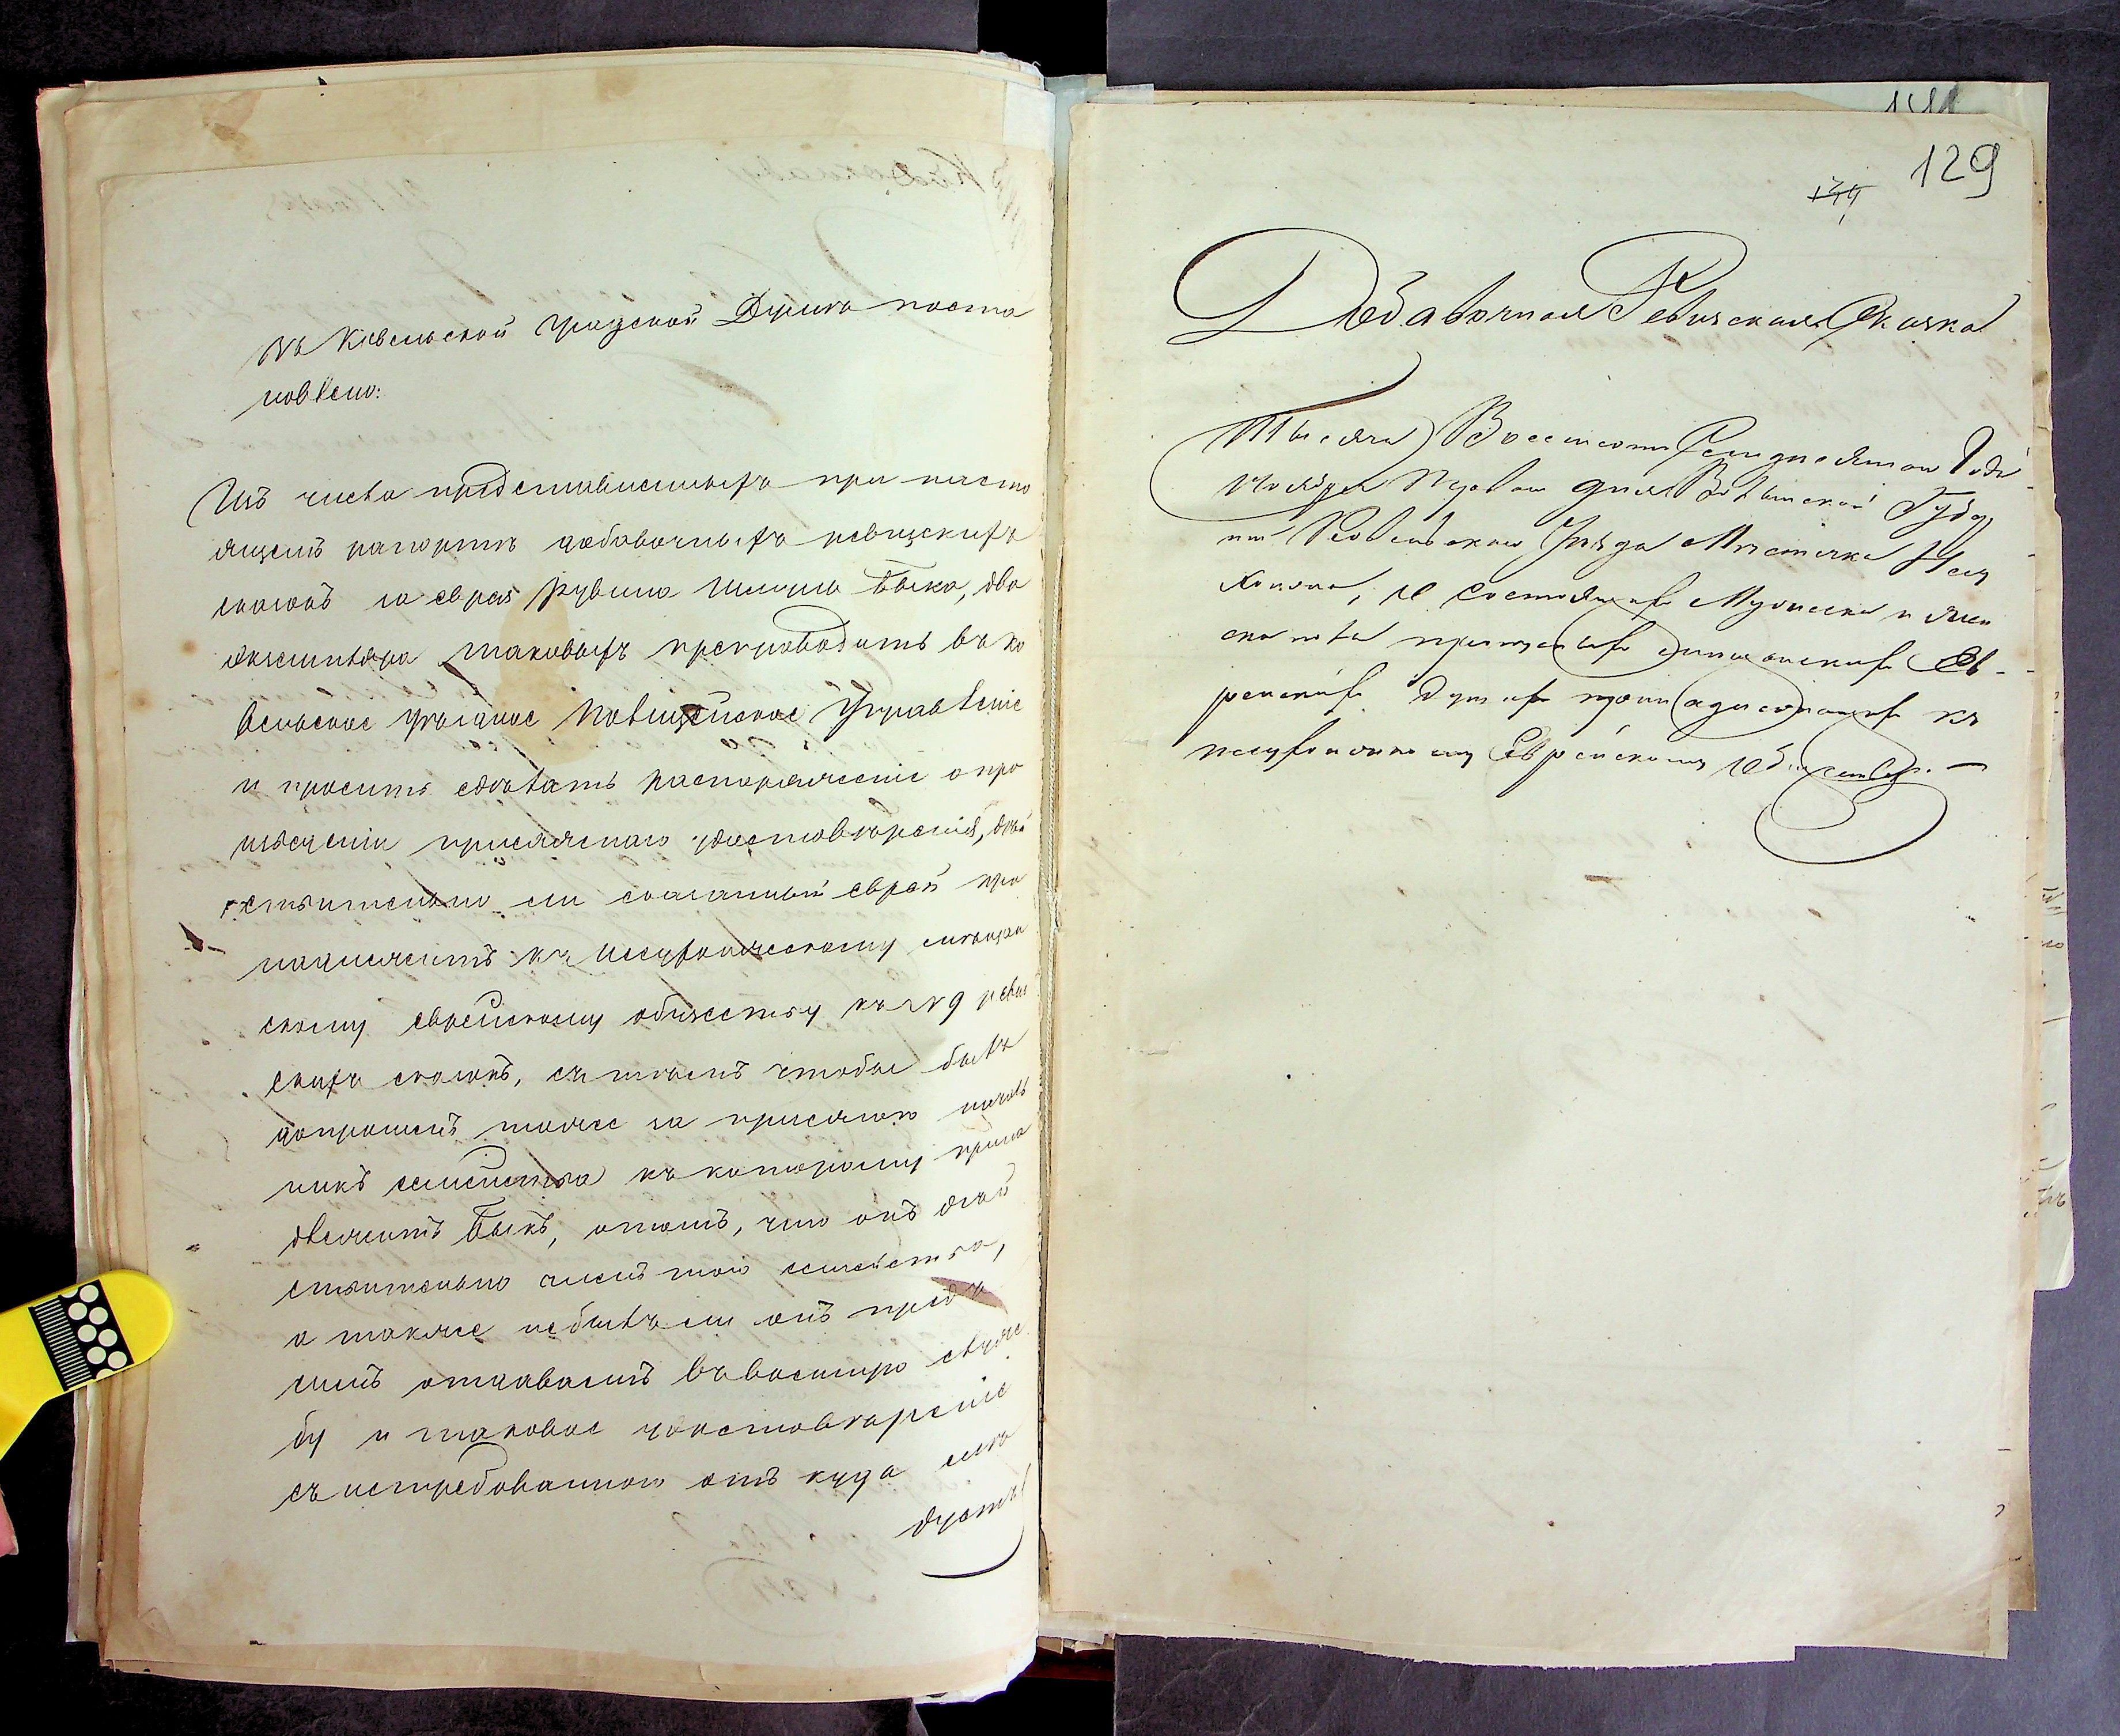 Въ Ковельской Градской Думѣ поста
новлено:
Изъ числа представленныхъ при насто
ящемъ рапортѣ добавочныхъ ревизскихъ
сказокъ за еврея Рувина Быка, два
экземпляра таковыхъ препроводить въ Ко
вельское уѣздное Полицейское Управленіе
и просить сдѣлать распоряженіе о про
изведеніи присяжнаго удостовѣренія, дѣй
ствительно ли сказанный еврей при
надлежитъ къ Несухоижескому мѣщан
скому еврейскому обществу къ № 9 ревиз
скихъ сказокъ, съ тѣмъ чтобы былъ
допрошенъ также за присягою
никъ семейства къ которому прина
длежитъ Быкъ, о томъ, что онъ дѣй
ствительно членъ того семейства,
а также не былъ ли онъ предъ
симъ отдаваемъ въ военную служ
бу и таковое удостовѣреніе
съ истребованной отъ куда слѣ
дуетъ
129
Добавочная Ревизская Сказка
Тысяча Восемьсотъ Семидесятаго Года
Ноября Перваго дня Волынской Губер
ніи Ковельскаго Уѣзда Мѣстечка Несу
хоижа, о состоящихъ Мужеска и жен
ска пола Ев-
рейскихъ Душахъ къ
несухоижскому Еврейскому Обществу. —